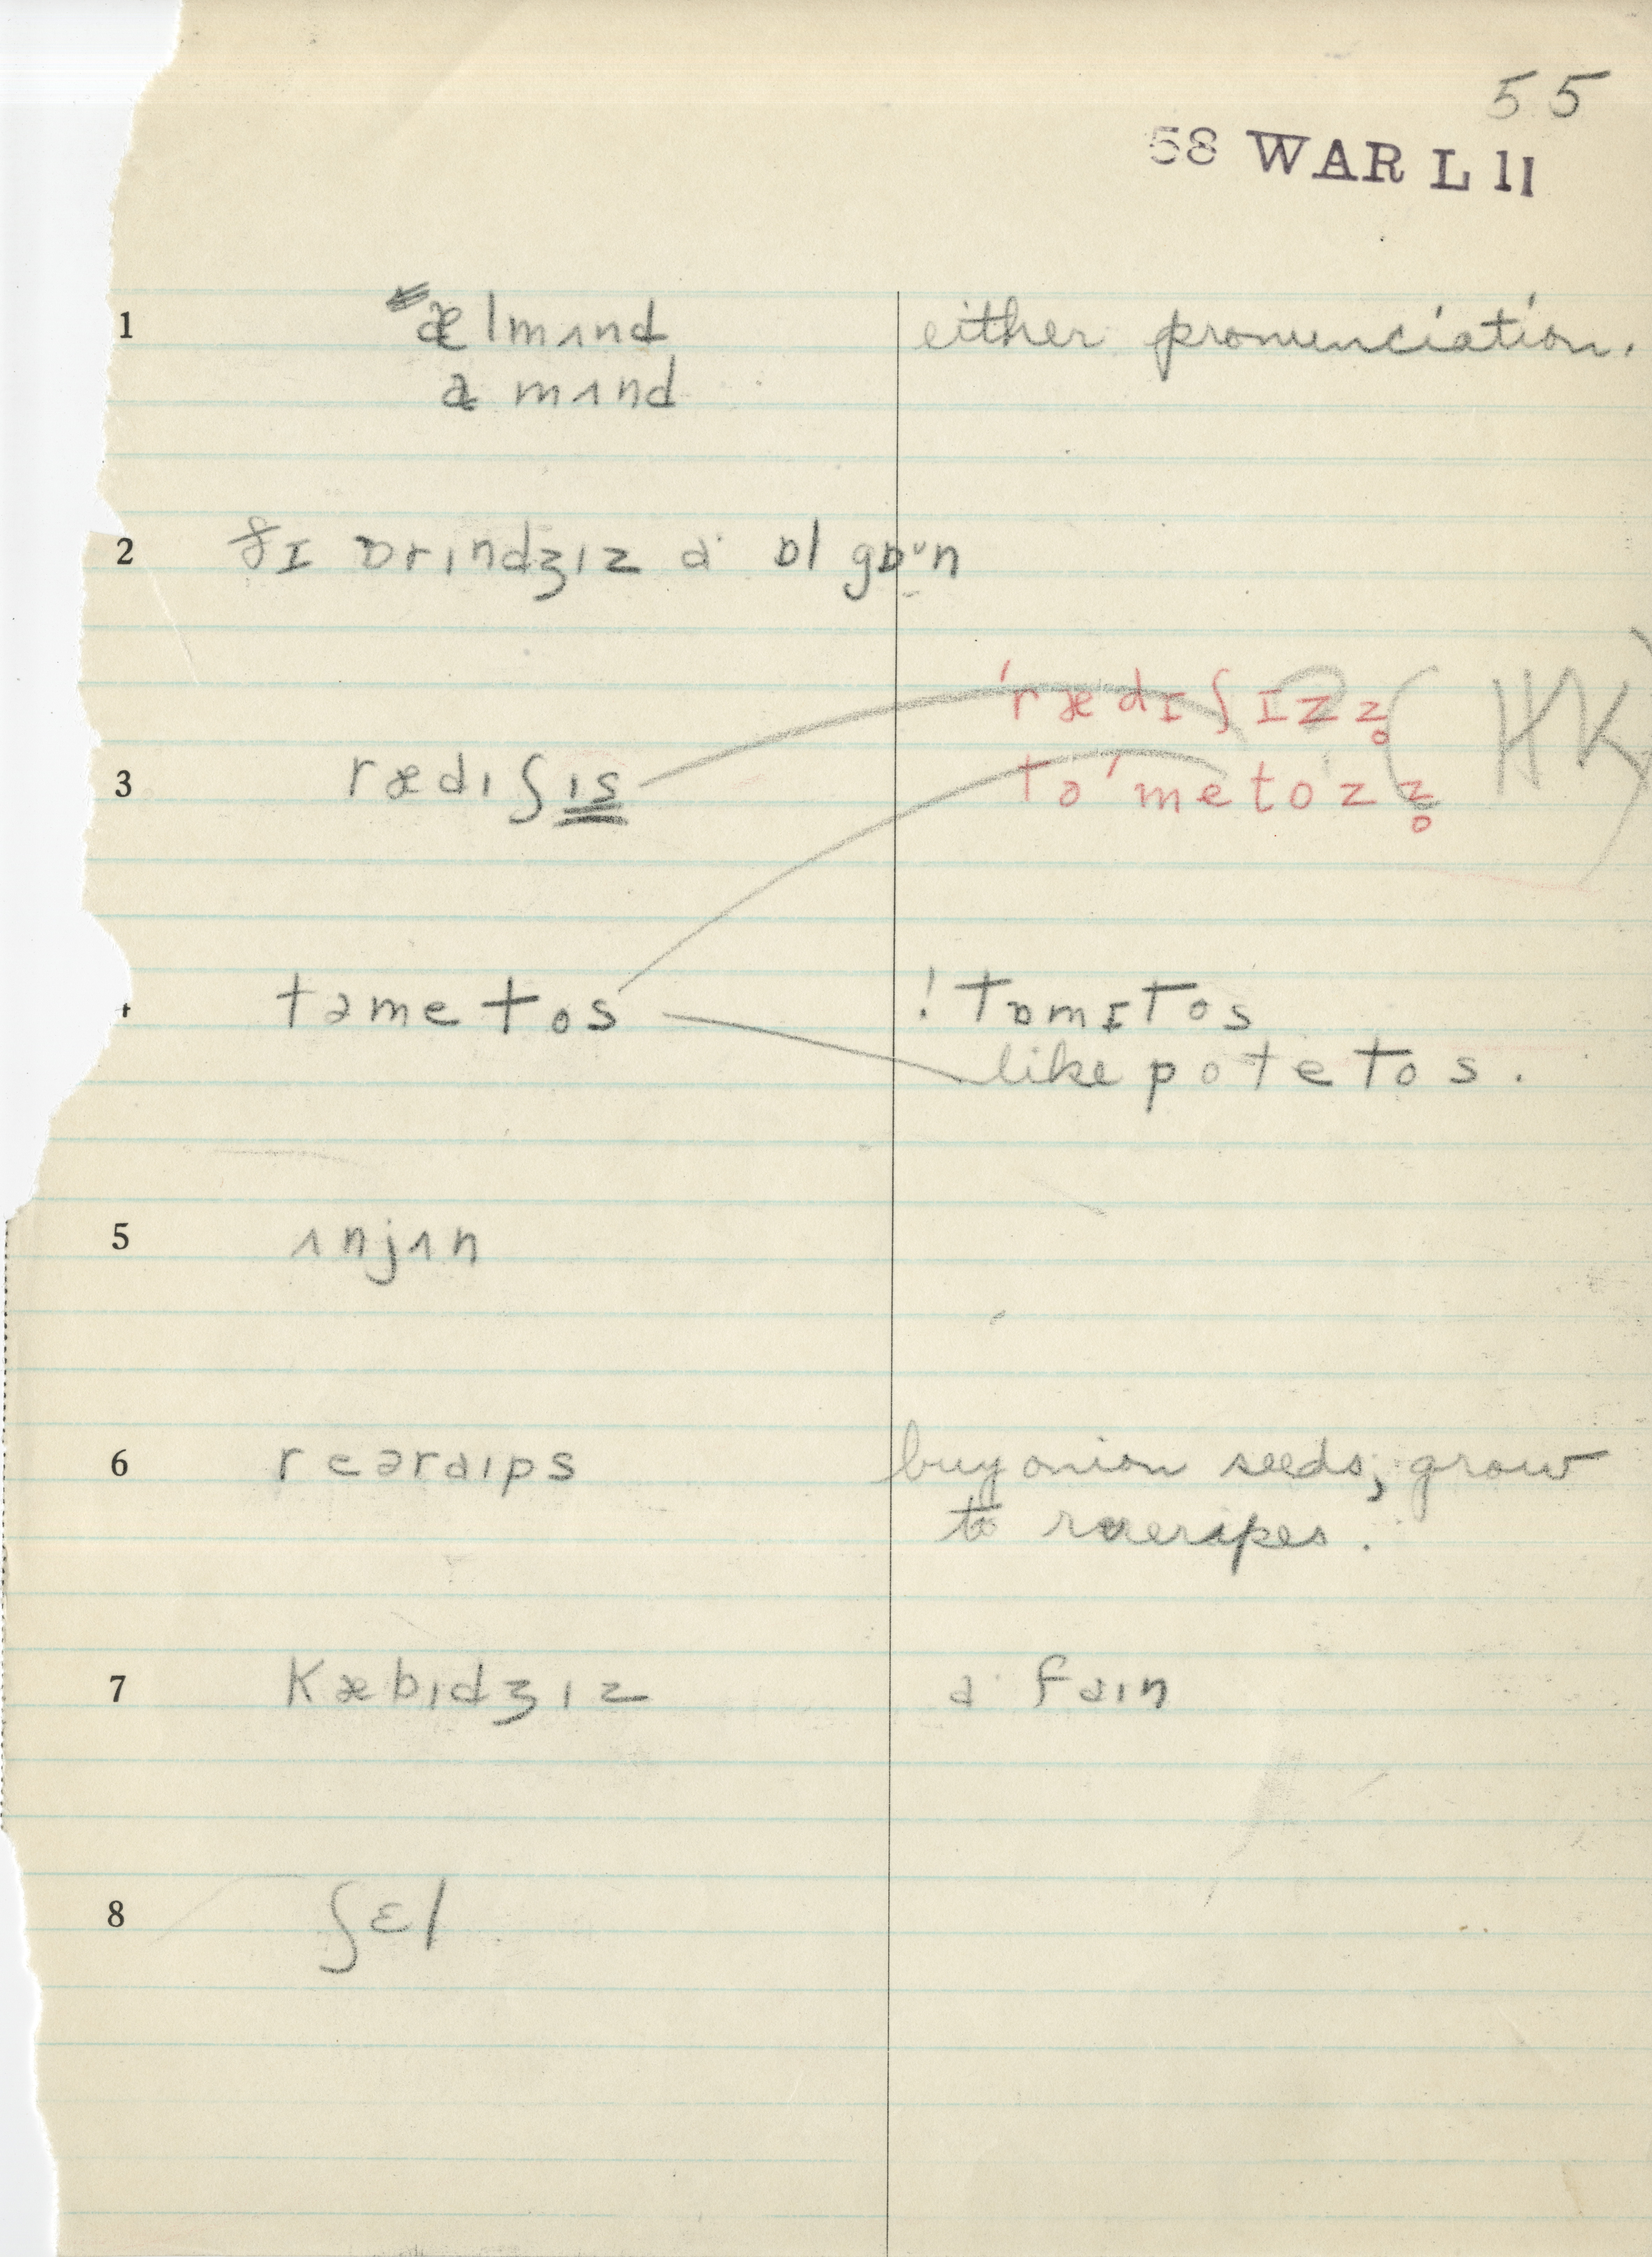 55
58 WAR L 11
1 ælmʌnd either pronunciation.
a mʌnd
2 ðɪ ɒrɪndʒɪz a· ɒl gɒᵘn
ˈrædɪʃɪz z̥ ? (HK)
3 rædɪʃɪs toˈmetoˈz z̥
4 təmetos ! tɒmɪtos
like potetos.
5 ʌnjʌn
6 reəraɪps buy onion seeds; grow
to
7 Kæbɪdʒɪz a· faɪn
8 ʃɛl